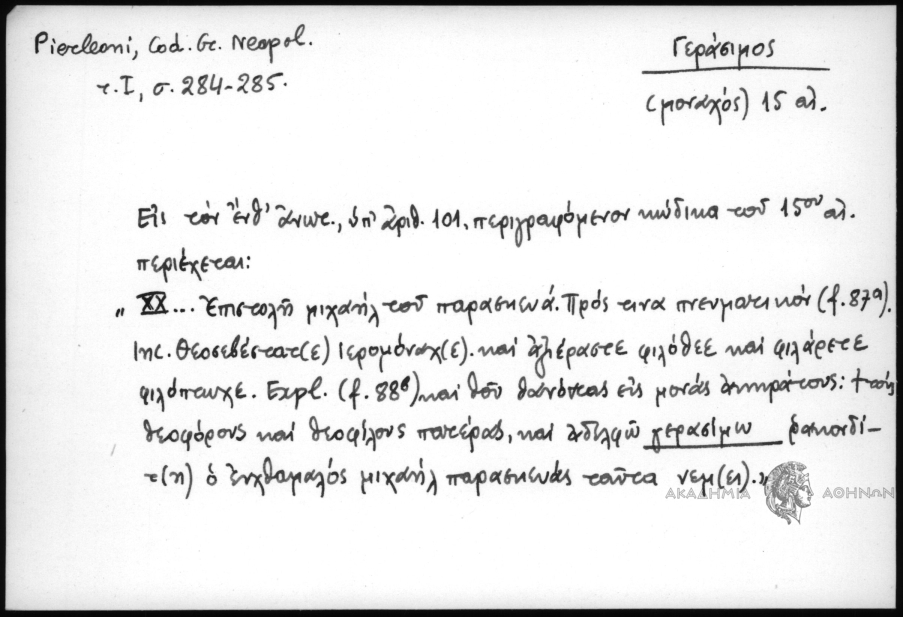 Pierleoni, Cod. Gr. Neapol.
τ. I, σ. 284-285.
Γεράσιμος
(μοναχός) 15 αἰ.
Εἰς τὸν ἔνθ' ἄνωτ., ὑπ' ἀριθ. 101, περιγραφόμενον κώδικα τοῦ 15ου αἰ.
περιέχεται:
„ XX... Ἐπιστολὴ μιχαὴλ τοῦ παρασκευᾶ. Πρός τινα πνευματικόν (f. 87a).
Inc. Θεοσεβέστατ(ε) ἱερομόναχ(ε). καὶ ἀξιέραστε φιλόθεε καὶ φιλάρετε
φιλόπτωχε. Expl. (f. 88β) καὶ θοῦ θανόντας εἰς μονὰς ἀκηράτους: † τοῖς
θεοφόροις καὶ θεοφίλοις πατέρας, καὶ ἀδελφῶ γερασίμω ῥακοδύ-
τ(η) ὁ χθαμαλός μιχαὴλ παρασκευᾶς ταῦτα νεμ(ει).„
ΑΚΑΔΗΜΙΑ ΑΘΗΝΩΝ